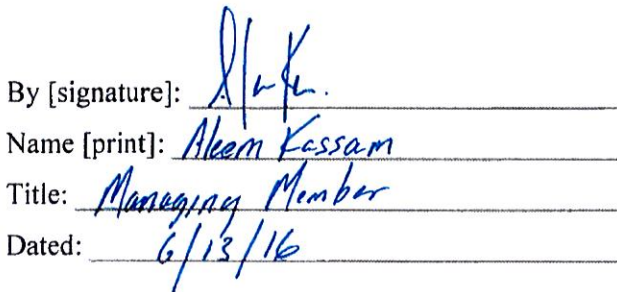 By [signature]:
Name [print]: Aleem Kassam
Title: Managing Member
Dated: 6/13/16